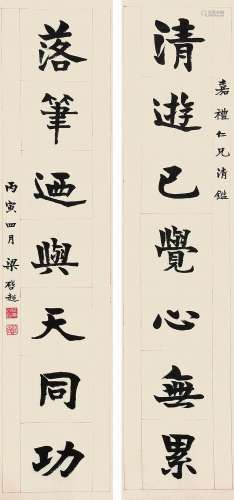 嘉禮仁兄清鑑
清遊已覺心無累
落筆迺與天同功
丙寅四月 梁啓超